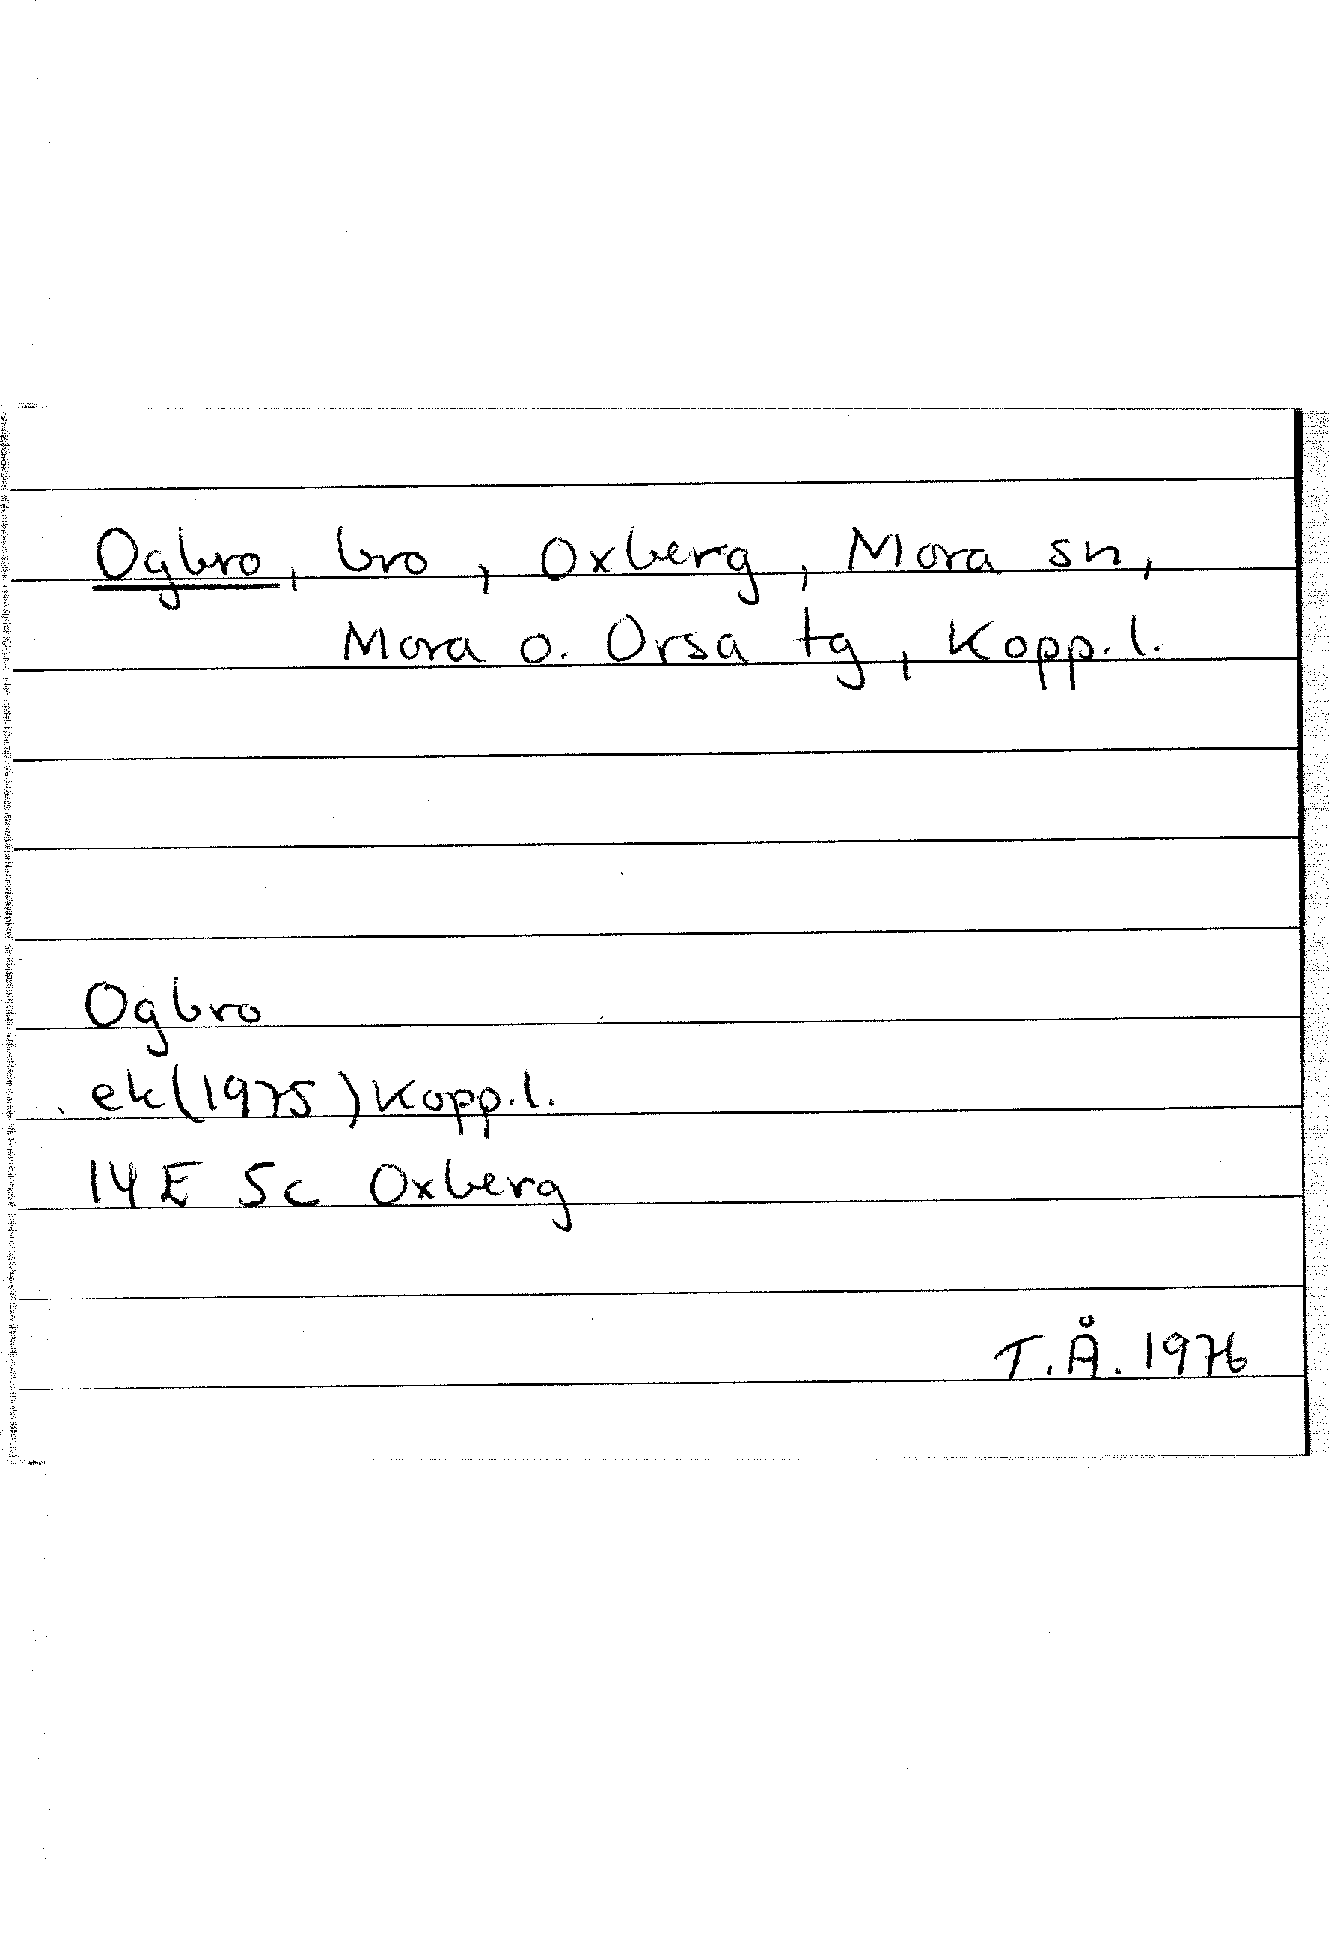 Ogbro, bro, Oxberg, Mora sn,
Mora o. Orsa tg, Kopp. l.
Ogbro
ek(1975) Kopp. l.
14 E 5c Oxberg
T. Å. 1976